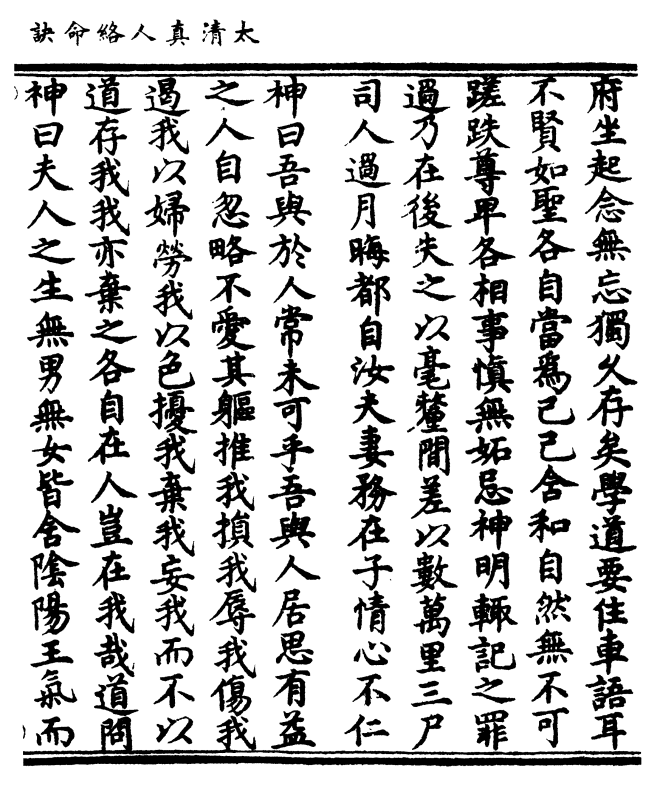 太清真人絡命訣
府坐起念無忘獨久存矣學道要住車語耳
不賢如聖各自當爲己己含和自然無不可
蹉跌尊卑各相事慎無妬忌神明輙記之罪
過乃在後失之以毫釐間差以數萬里三尸
司人過月晦都自汝夫妻務在子情心不仁
神曰吾與於人常未可乎吾與人居思有益
之人自忽略不愛其軀推我損我辱我傷我
遏我以婦勞我以色擾我棄我妄我而不以
道存我我亦棄之各自在人豈在我哉道問
神曰夫人之生無男無女皆含陰陽王氣而